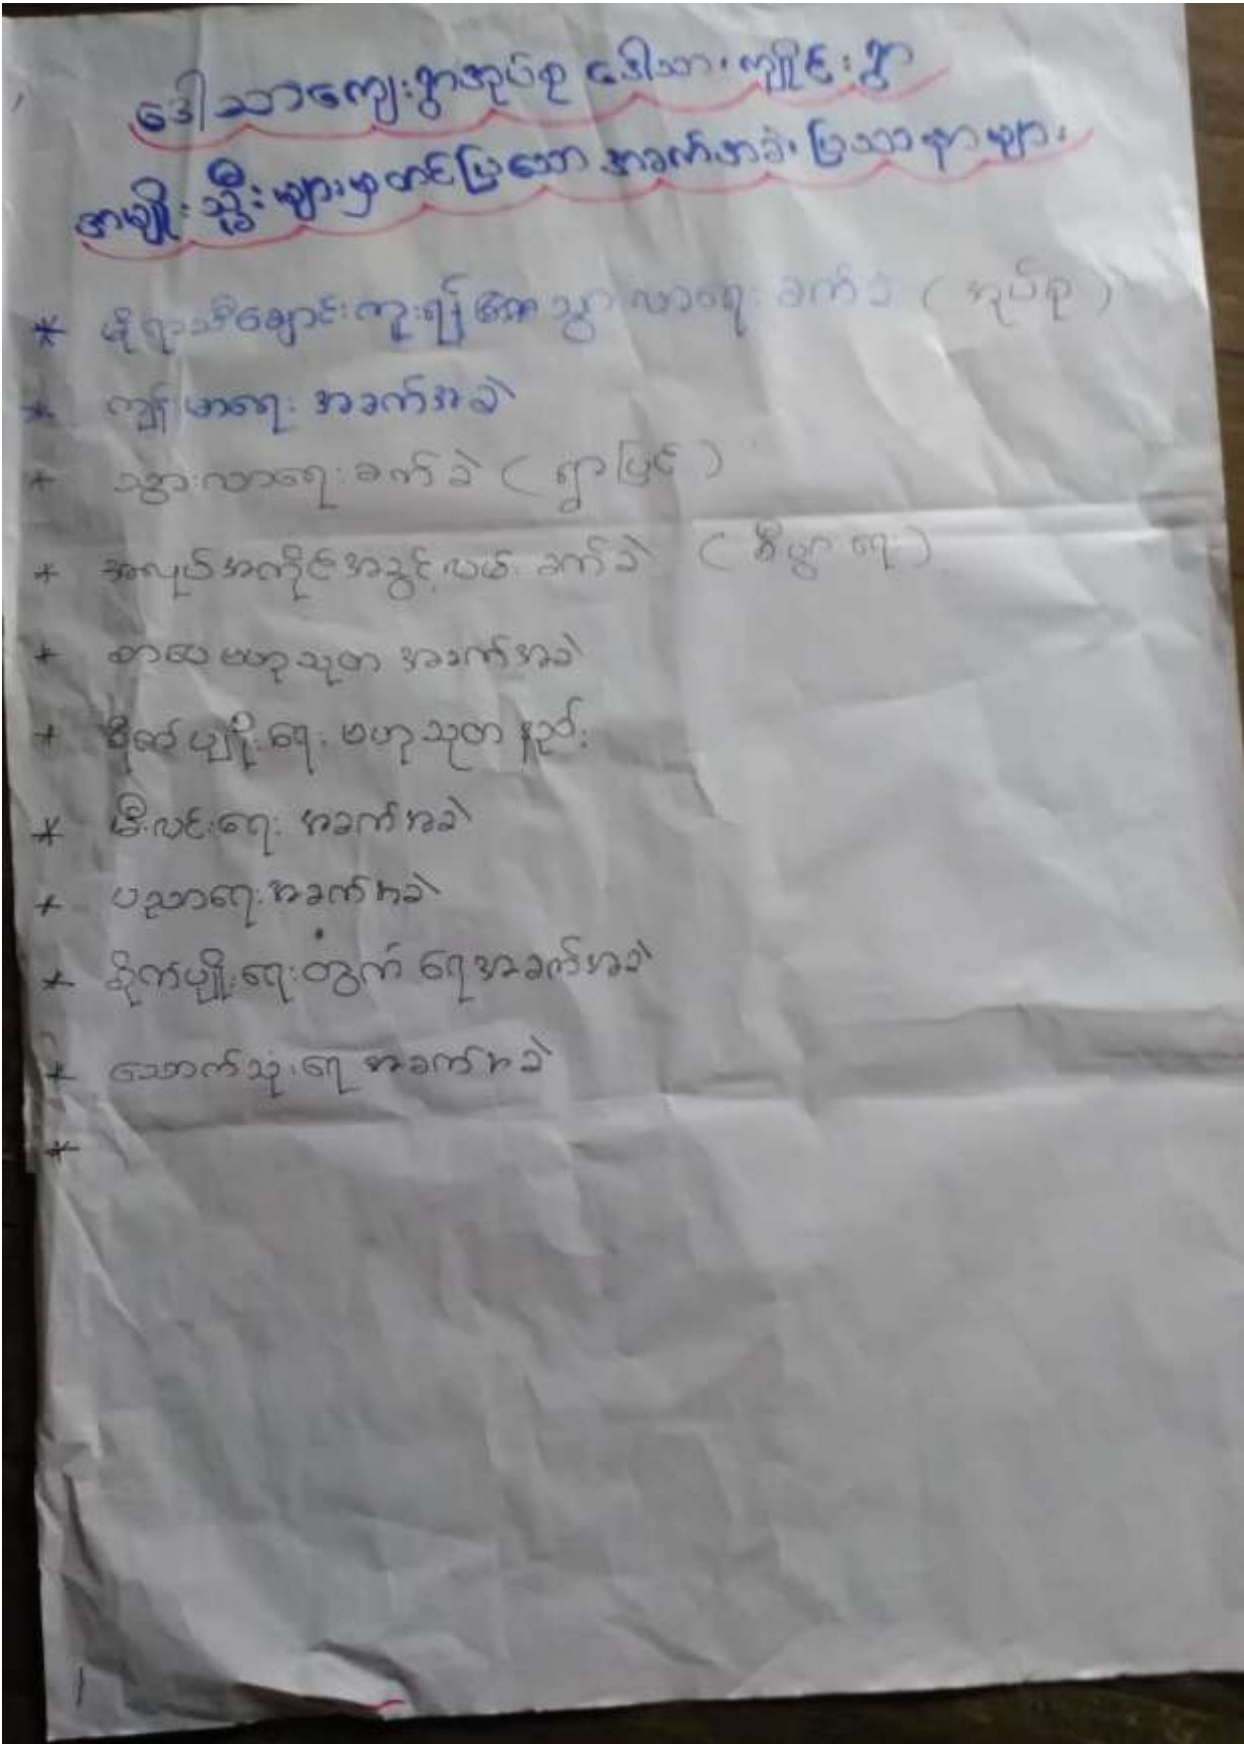 ဒေါသာကျေးရွာအုပ်စု ဒေါသာ ကျိုင်းရွာ
အမျိုးသ္မီးများမှတင်ပြသော အခက်အခဲ ပြသာနာများ
* မိုးရာသီချောင်းကူး၍ သွာလာရေး ခက်ခဲ ( အုပ်စု )
* ကျန်မာရေး အခက်အခဲ
* သွားလာရေး ခက်ခဲ ( ရွာပြင် )
* အလုပ်အကိုင်အခွင့်လမ်း ခက်ခဲ ( စီပွာရေး )
* စာပေ ဗဟုသုတ အခက်အခဲ
* စိုက်ပျိုးရေး ဗဟုသုတ နည်း
* မီးလင်းရေး အခက်အခဲ
* ပညာရေး အခက်အခဲ
* စိုက်ပျိုးရေးတွက် ရေအခက်အခဲ
* သောက်သုံးရေ အခက်အခဲ
*